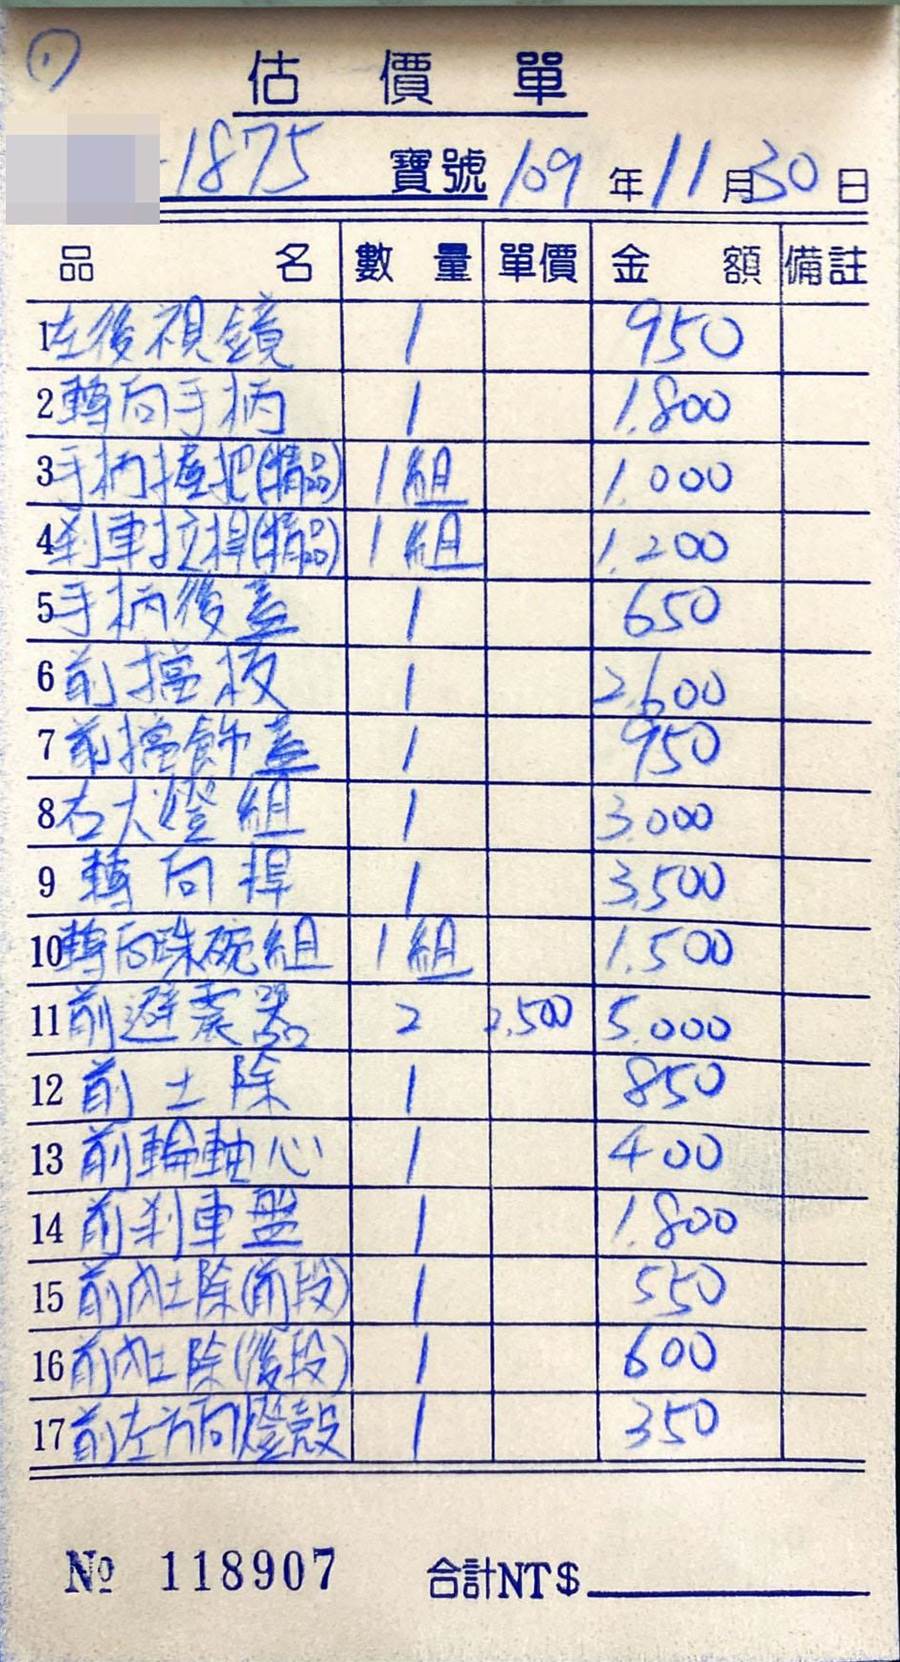 (1)
估價單
-1875 寶號 109年11月30日
品名 數量 單價 金額 備註
1 左後視鏡 1 950
2 轉向手柄 1 1,800
3 手柄握把(精品) 1組 1,000
4 刹車拉桿(精品) 1組 1,200
5 手柄後蓋 1 650
6 前擋板 1 2,600
7 前擋飾蓋 1 950
8 右大燈組 1 3,000
9 轉向桿 1 3,500
10 轉向珠碗組 1組 1,500
11 前避震器 2 2,500 5,000
12 前土除 1 850
13 前輪軸心 1 400
14 前刹車盤 1 1,800
15 前內土除(前段) 1 550
16 前內土除(後段) 1 600
17 前左方向燈殼 1 350
№ 118907 合計NT$